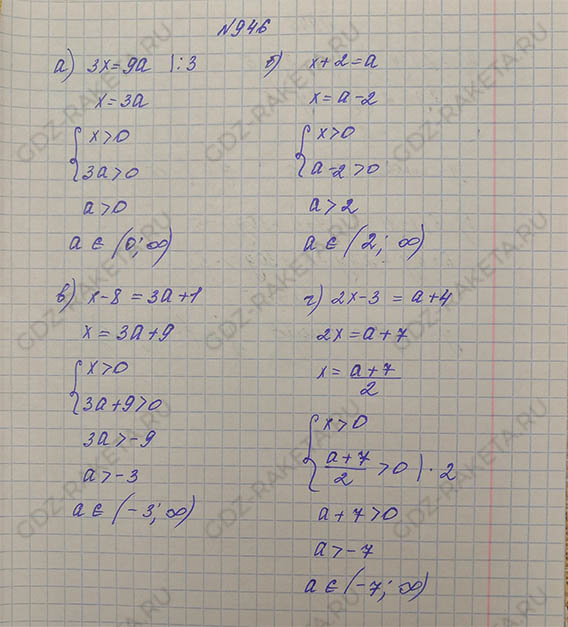 №946
а) 3x=9a |:3
x=3a
{x>0
3a>0
a>0
a ∈ (0; ∞)
б) x+2=a
x=a-2
{x>0
a-2>0
a>2
a ∈ (2; ∞)
в) x-8=3a+1
x=3a+9
{x>0
3a+9>0
3a>-9
a>-3
a ∈ (-3; ∞)
г) 2x-3=a+4
2x=a+7
x=(a+7)/2
{x>0
(a+7)/2>0 |·2
a+7>0
a>-7
a ∈ (-7; ∞)
GDZ-RAKETA.RU